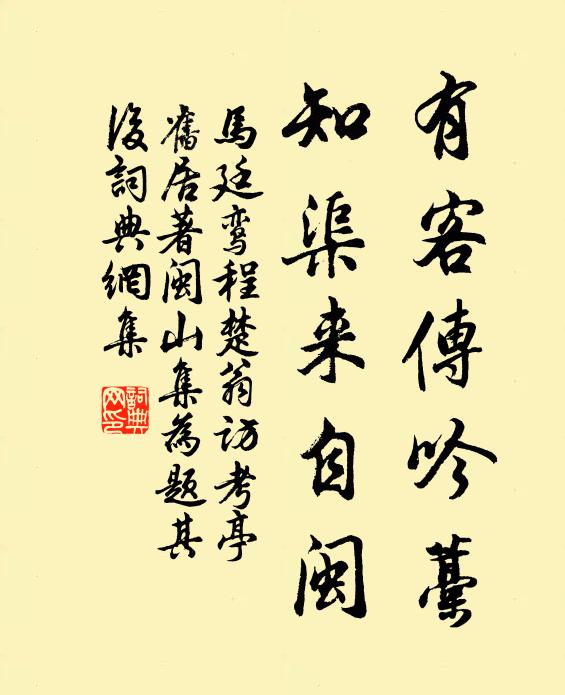 有客傳吟藁
知渠来自闽
馬廷鸾程楚翁访考亭
舊居著闽山集為题其
後詞典網集
詞典网印